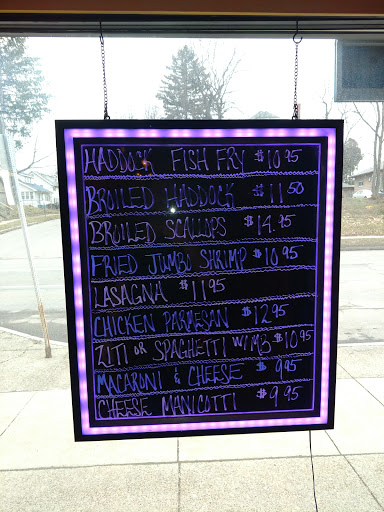 HADDOCK FISH FRY $10.95
BROILED HADDOCK $11.50
BROILED SCALLOPS $14.95
FRIED JUMBO SHRIMP $10.95
LASAGNA $11.95
CHICKEN PARMESAN $12.95
ZITI OR SPAGHETTI W/1MB $10.95
MACARONI & CHEESE $9.95
CHEESE MANICOTTI $9.95